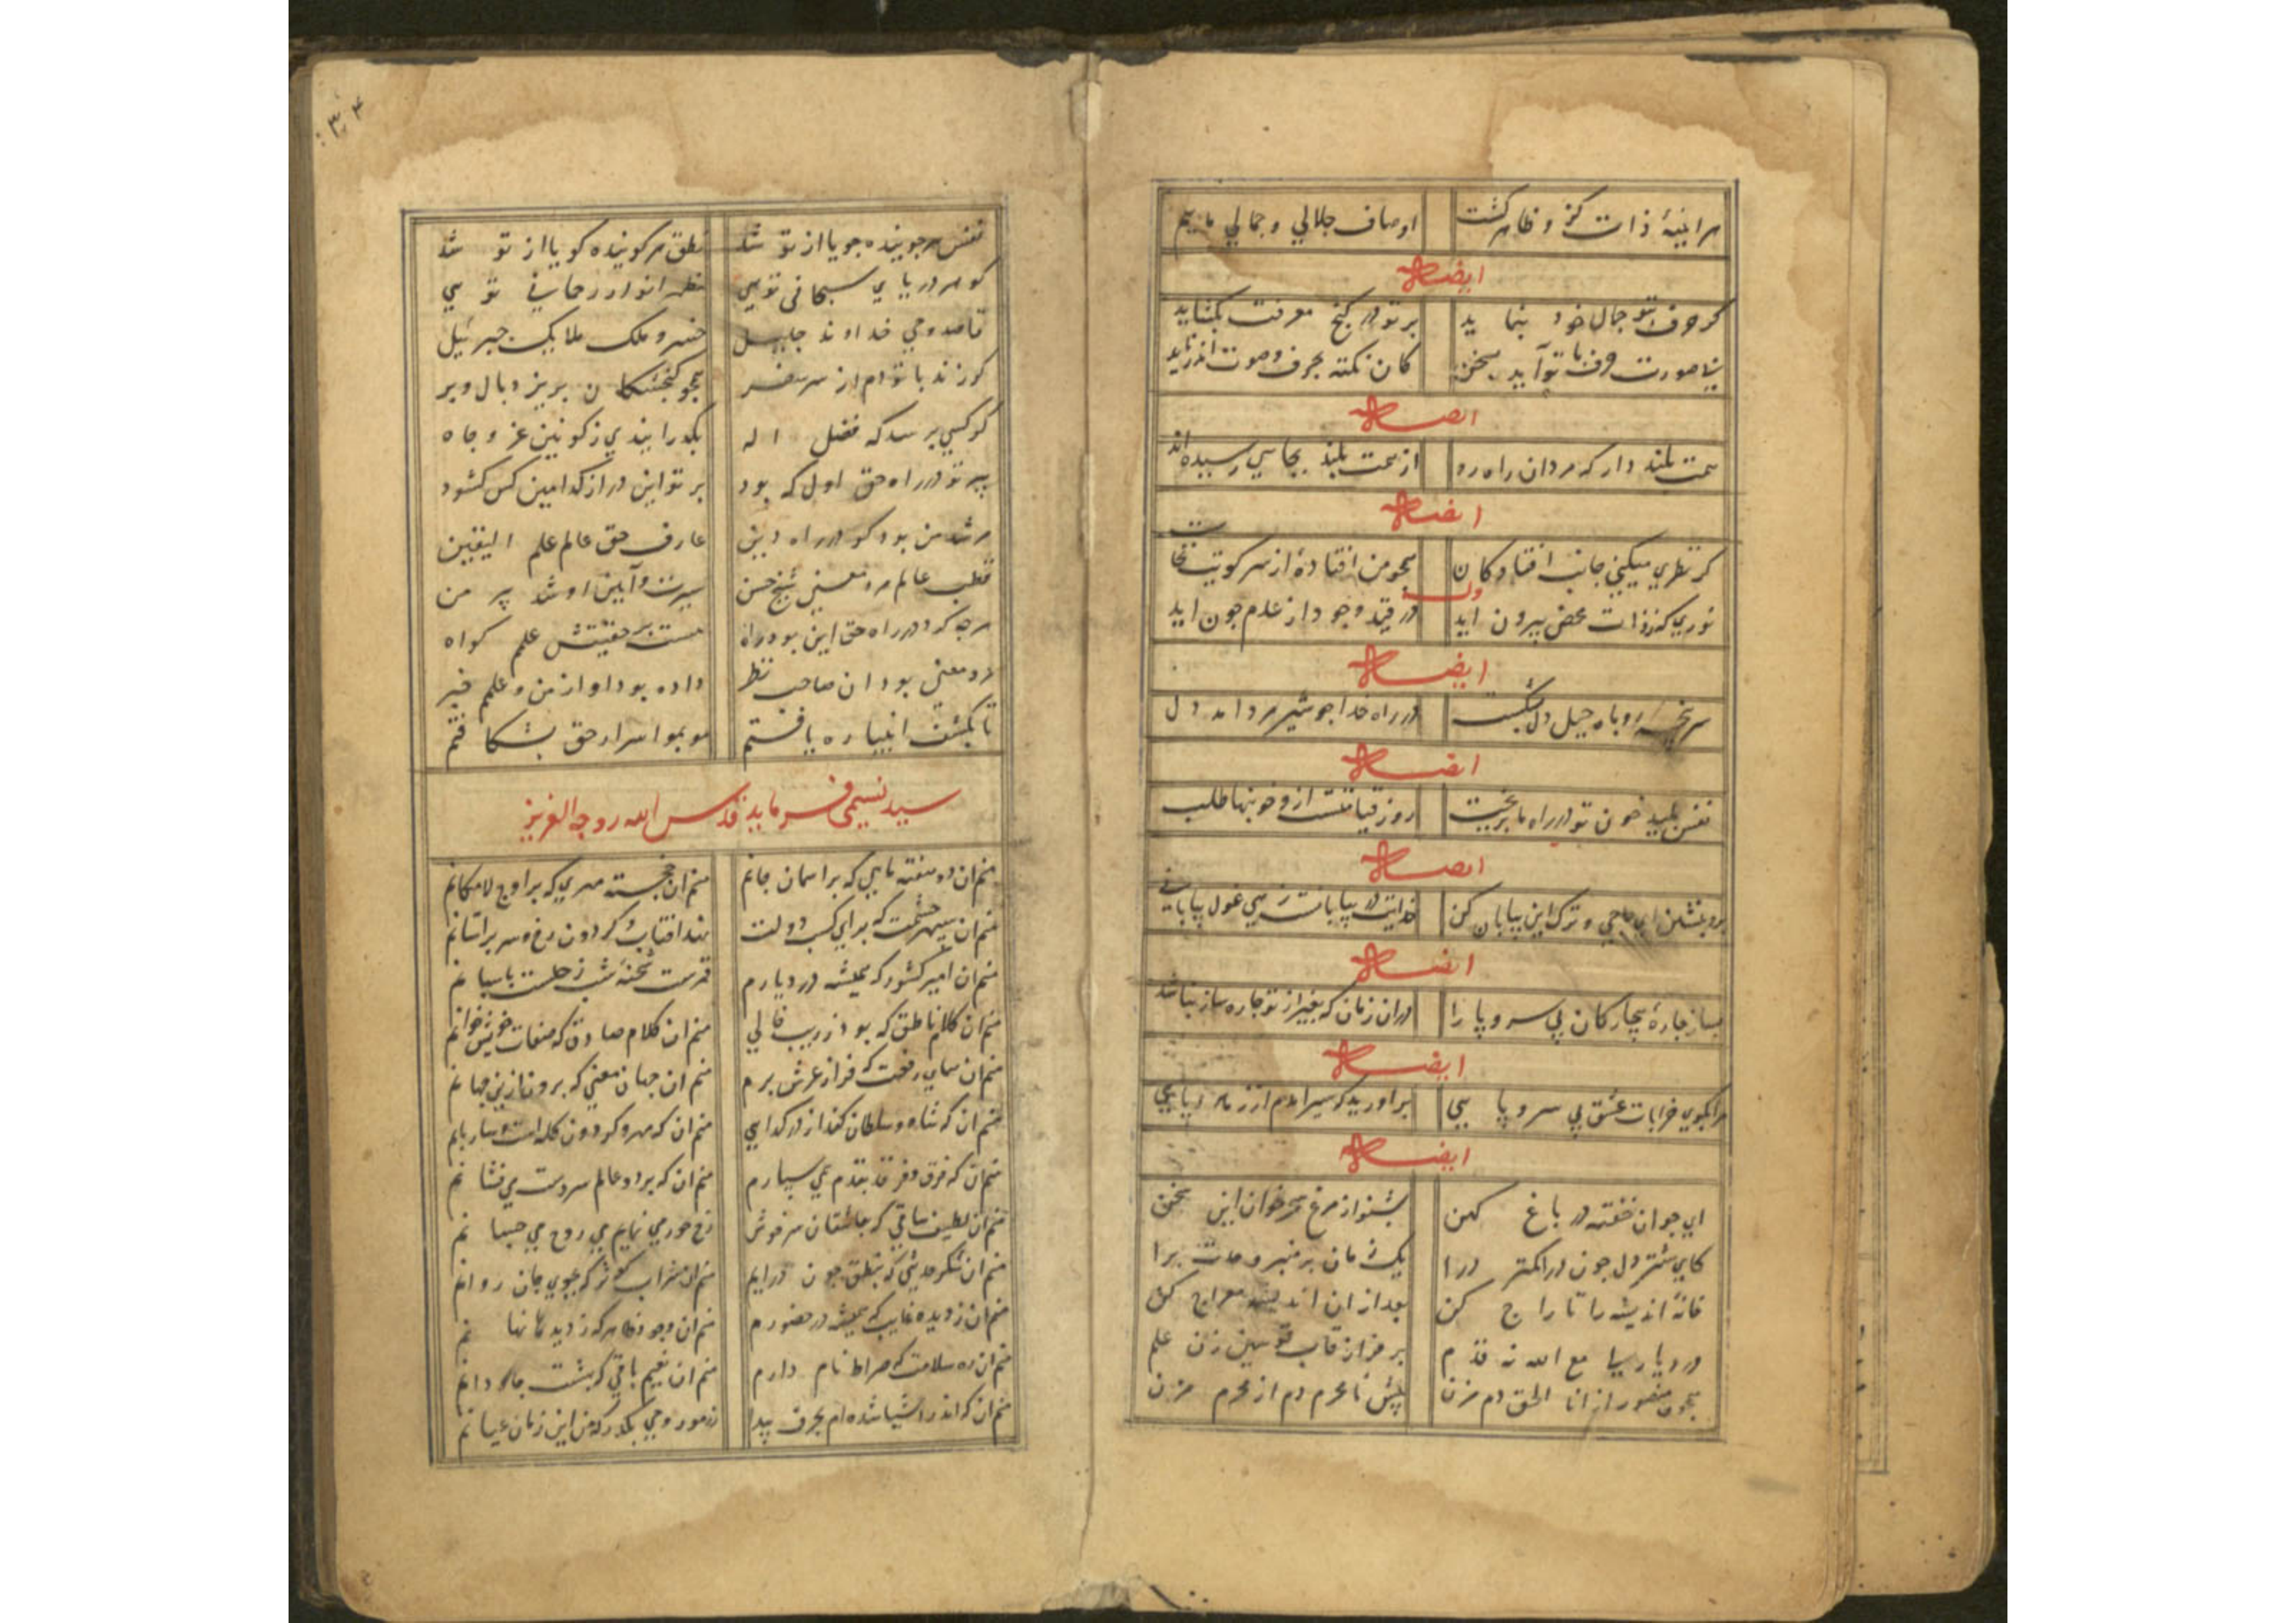 هر آینهٔ ذات کزو ظاهر گشت اوصاف جلالي و جمالي مائیم
ایضاً
کر حرف بتو جمال خود بنماید بر تو در کنج معرفت بکشاید
بیصورت حرف با تو آید بسخن کان نکته بحرف و صوت اندر ناید
ایضاً
همت بلند دار که مردان راه رو از همت بلند بجایي رسیده اند
ایضاً
کر نظري میکني جانب افتادکان همچو من افتادهٔ از سر کویت نخاست
وله
نوري که ز ذات محض بیرون اید در قید وجود از عدم چون اید
ایضاً
سر پنجه روباه حیل دل بشکست در راه خدا چو شیر مردانه دل
ایضاً
نفس پلید خون تو در راه ما بریخت روز قیامتست ازو خونبها طلب
ایضاً
برو بنشین اي حاجي و ترک این بیابان کن خدایت در بیابان نیست اي غول بیاباني
ایضاً
بساز چارهٔ بیچارکان بي سر و پا را در ان زمان که بغیر از تو چاره ساز نباشد
ایضاً
مرا بکوي خرابات عشق بي سر و پایي براورید که سیر امدم از زهد ریایي
ایضاً
اي جوان خفته در باغ کهن بشنو از مرغ سحرخوان این سخن
کاي شتر دل چون در اکمتر درا یک زمان بر منبر وحدت برا
خانهٔ اندیشه را تاراج کن بعد از ان اندیشه معراج کن
در دیار لي مع الله نه قدم بر فراز قاب قوسین زن علم
همچو منصور از انا الحق دم مزن پیش نامحرم دم از محرم مزن
نفس هر جوینده جویا از تو شد نطق هر کوینده کویا از تو شد
کوهر دریاي سبحاني تویي مظهر انوار رحماني تویي
قاصد وحي خداوند جلیل خسرو ملک ملایک جبرئیل
کر زند با تو دم از سر سفر همچو کنجشکان بریزد بال و پر
کر کسي پرسد که فضل اله بکذرانیدي ز کونین عز و جاه
پیر تو در راه حق اول که بود بر تو این در از کدامین کس کشود
مرشد من بود کو در راه دین عارف حق عالم علم الیقین
قطب عالم مرد معني شیخ حسن سیرت و آیین او شد پیر من
هرچه کرد در راه حق این بود راه هست بر حقیتش علمم کواه
مرد معني بود ان صاحب نظر داده بود او از من و علمم خبر
تا بکشف انبیا ره یافتم مو بمو اسرار حق بشکافتم
سید نسیمی فرماید قدس الله روحه العزیز
منم ان دو هفته ماهي که بر اسمان جانم منم ان خجسته مهري که بر اوج لامکانم
منم ان سپهر حشمت که براي کسب دولت نهد افتاب کردون رخ و سر بر استانم
منم ان امیر کشور که همیشه در دیارم قمرست شحنهٔ شب زحلست پاسبانم
منم ان کلام ناطق که بود ز ریب خالي منم ان کلام صادق که صفات خویش خوانم
منم ان هماي رفعت که فراز عرش پرم منم ان جهان معني که برون ازین جهانم
منم ان که شاه و سلطان کند از درم کدایي منم ان که مهر و کردون کله است و سایبانم
منم ان که فرق فرقد بقدم همي سپارم منم ان که بر دو عالم سر دست مي فشانم
منم ان لطیف ساقي که بعاشقان سرخوش رخ حور مي نمایم مي روح مي چشانم
منم ان شکر حدیثي که بنطق چون درایم منم ان شراب کوثر که بجوي جان روانم
منم ان ز دیده غایب که همیشه در حضورم منم ان وجود ظاهر که ز دیدها نهانم
منم ان ره سلامت که صراط نام دارم منم ان نعیم باقي که بهشت جاودانم
منم ان که اندر اشیا شده ام بحرف پیدا